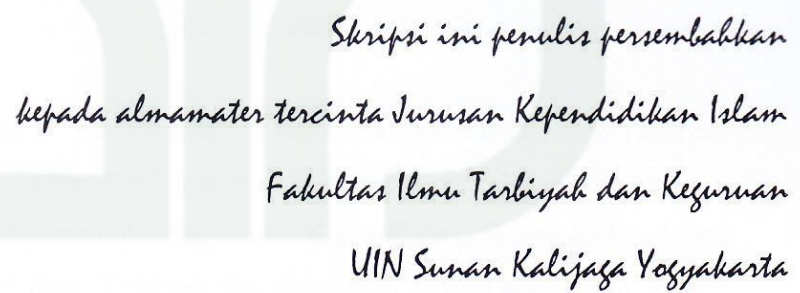 Skripsi ini penulis persembahkan
kepada almamater tercinta Jurusan Kependidikan Islam
Fakultas Ilmu Tarbiyah dan Keguruan
UIN Sunan Kalijaga Yogyakarta